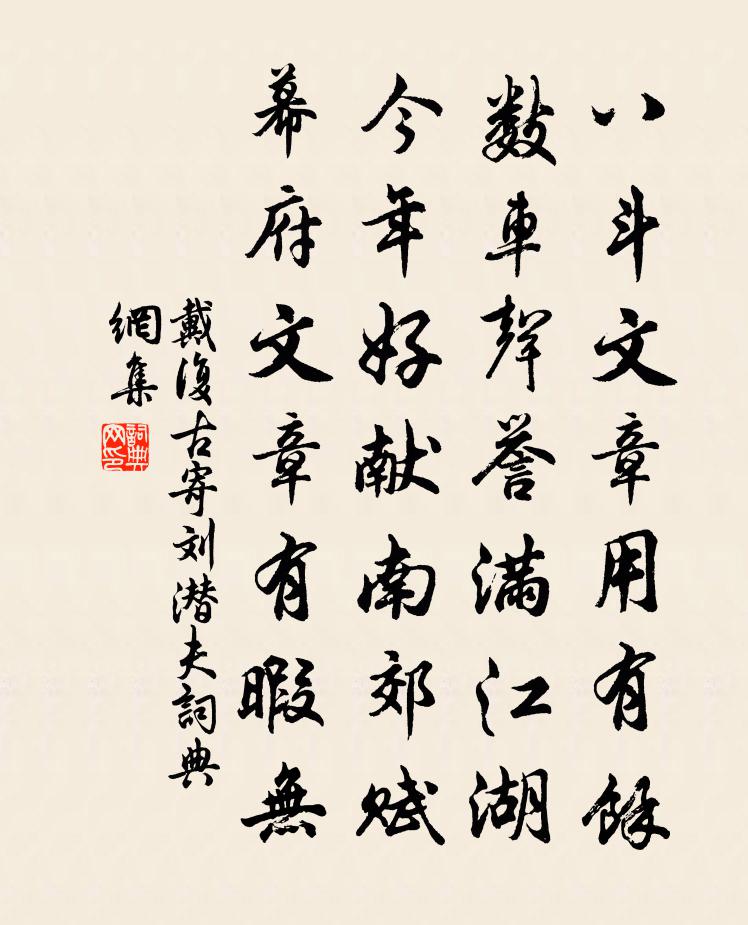 八斗文章用有餘
數車聲譽滿江湖
今年好献南郊赋
幕府文章有暇無
戴復古寄刘潜夫詞典
網集
詞典網印